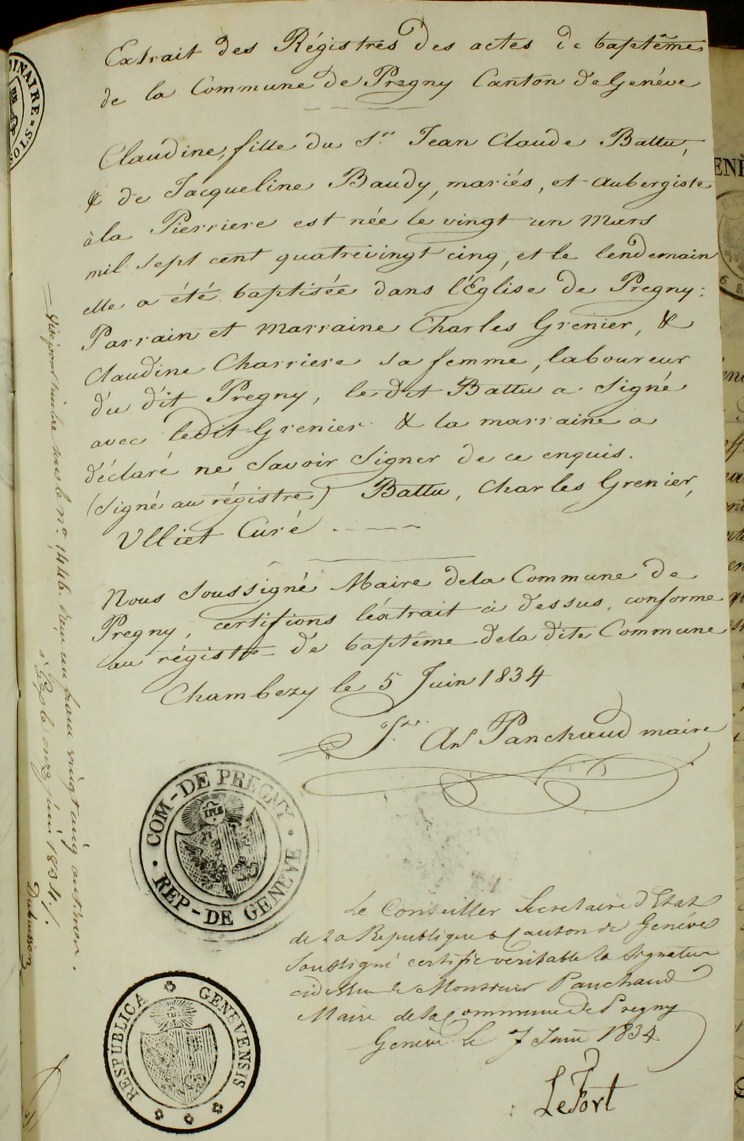 Extrait des Régistres des actes de baptême
de la Commune de Pregny Canton de Genéve
Claudine, fille du Sr. Jean Claude Battu,
& de Jacqueline Baudy, mariés, et aubergiste
à la Pierriere est née le vingt un Mars
mil sept cent quatrevingt cinq, et le lendemain
elle a été baptisée dans l'Eglise de Pregny:
Parrain et marraine Charles Grenier, &
Claudine Charriere sa femme, laboureur
du dit Pregny, le dit Battu a signé
avec ledit Grenier & la marraine a
déclaré ne savoir signer de ce enquis.
(signé au régistre) Battu, Charles Grenier,
Ulliet Curé
Nous soussigné Maire dela Commune de
Pregny, certifions l'extrait ci dessus, conforme
au régistre de baptême dela dite Commune
Chambezy le 5 Juin 1834
Panchaud maire
COM-DE PREGNY
REP-DE GENEVE
Le Conseiller Secretaire d'Etat
de la Republique & Canton de Genève
soussigné certifie veritable la signature
ci dessus de Monsieur Panchaud
Maire de la commune de Pregny
Genève le 7 Juin 1834.
LeFort
RESPUBLICA GENEVENSIS
Visé pour timbre sous le no. 1446. vingt cinq
à Gex le onze juin 1834.
Dubuisson